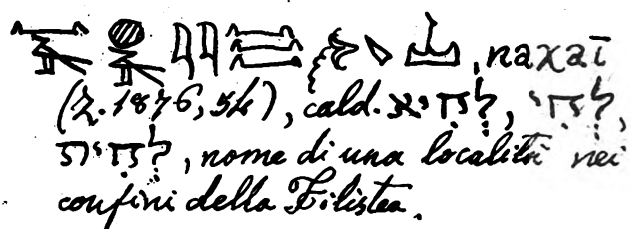 , naχaī
(Z. 1876, 54), cald. לְחִיא, לְחִי,
לְחִית, nome di una località nei
confini della Filistea.